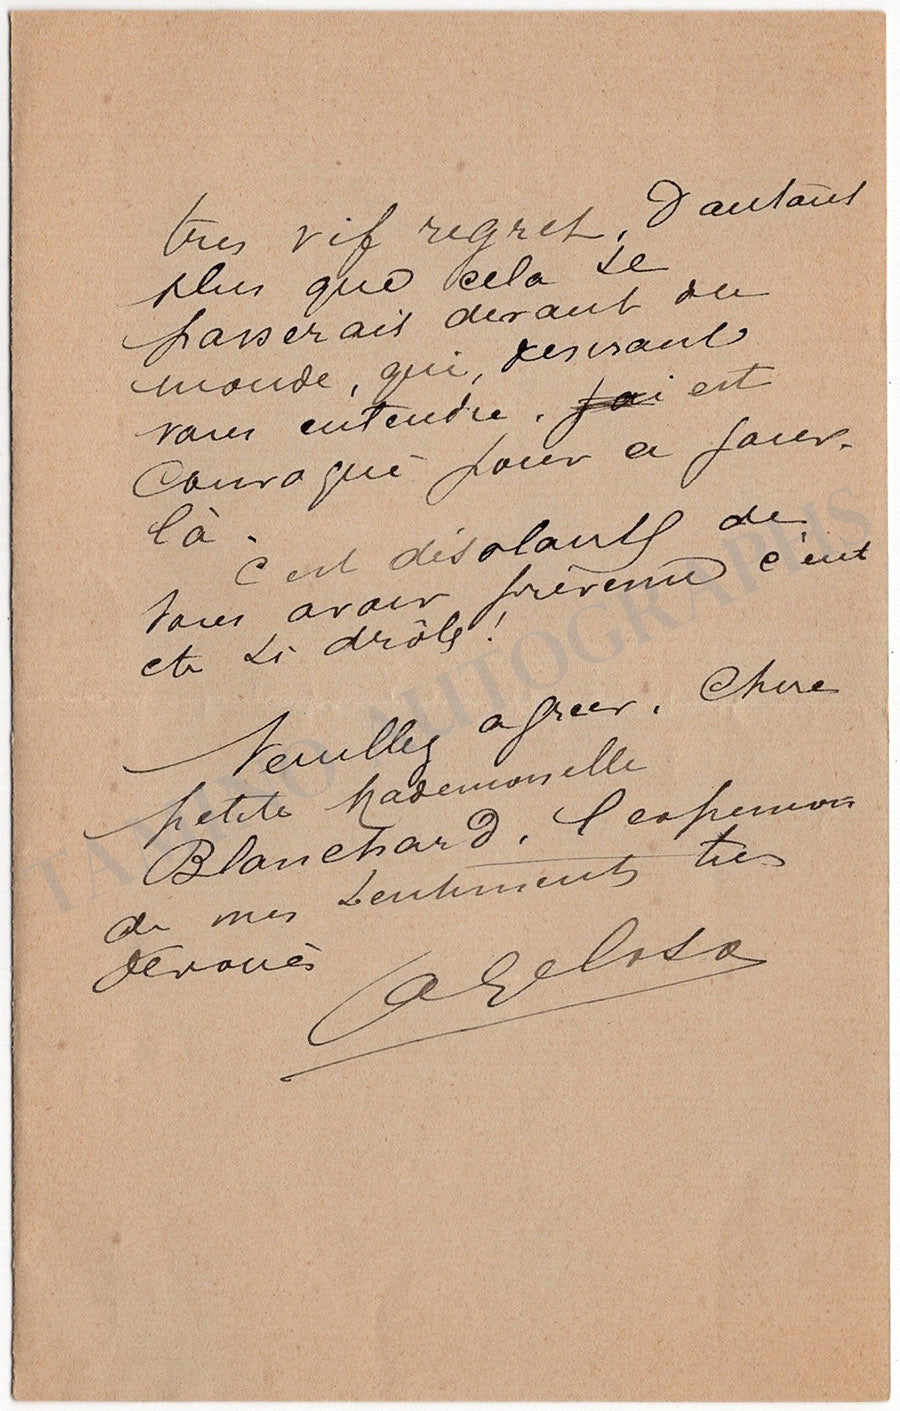 tres vif regret, d'autant
plus que cela se
passerait devant du
monde, qui, desirant
vous entendre, j'ai est
Convoqué pour ce jour-
là.
C'est désolant de
vous avoir prévenu c'eut
ete si drôle!
Veuillez agreer, Chere
petite Mademoiselle
Blanchard, l'expression
de mes sentiments tres
devoués
A Geloso
TAMINO AUTOGRAPHS